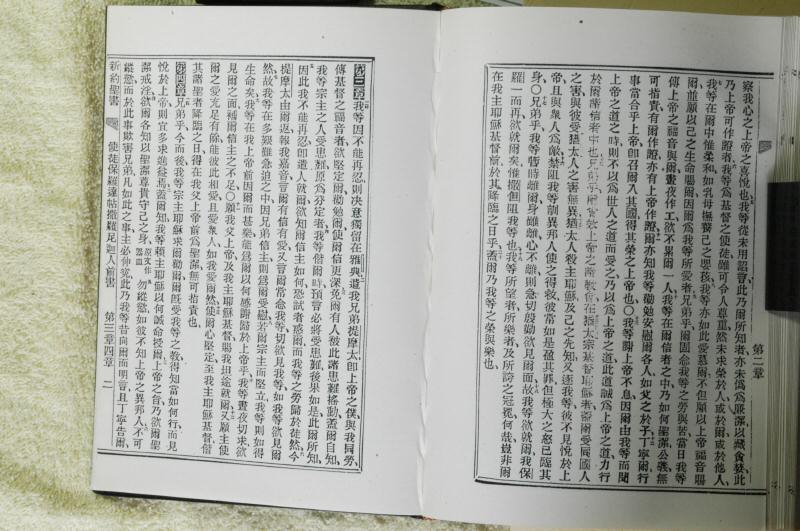 第二章
察我心之上帝之喜悅也我等從未用諂言此乃爾所知者亦未僞爲廉潔以藏貪婪此
乃上帝可作證者我等爲基督之使徒雖可令人尊重然未求榮於人或於爾或於他人
我等在爾中惟柔和如乳母撫育己之嬰孩我等亦如此愛慕爾不但願以上帝福音賜
爾並願以己之生命賜爾因爾爲我等所愛者兄弟乎爾固念我等之勞與苦當日我等
傳上帝之福音與爾晝夜作工欲不累爾一人我等在爾信者之中乃如何聖潔公義無
可指責有爾作證亦有上帝作證爾亦知我等勸勉安慰爾各人如父之於子丁寧爾行
事當合乎上帝即召爾入其國得其榮之上帝也〇我等謝上帝不息因爾由我等而聞
上帝之道之時則不以爲世人之道而受之乃以爲上帝之道此道誠爲上帝之道力行
於爾諸信者中也兄弟乎爾實效上帝之諸教會在猶太宗基督耶穌者蓋爾受同國人
之害與彼受猶太人之害無異猶太人殺主耶穌及己之先知又逐我等彼不見悅於上
帝且與衆人爲敵禁阻我等訓異邦人使之得救彼常如是盈其罪但極大之怒已臨其
身〇兄弟乎我等暫時離爾身雖離心不離則急切殷勤欲見爾面故我等欲就爾我保
羅一而再欲就爾矣惟撒但阻我等也我等所望者所樂者及所誇之冠冕何哉豈非爾
在我主耶穌基督前於其降臨之日乎蓋爾乃我等之榮與樂也
第三章我等因不能再忍則決意獨留在雅典遣我兄弟提摩太即上帝之僕與我同勞
傳基督之福音者欲堅定爾勸勉爾使爾信更深免爾有人彼此諸患難搖動蓋爾自知
我等宗主之人受患難原爲分定者我等偕爾時預言必將受患難後果如是此爾所知
因此我不能再忍即遣人就爾欲知爾信主如何恐試者惑爾而我等之勞歸於徒然今
提摩太由爾返報我嘉音言爾有信有愛又言爾常念我等切欲見我等如我等欲見爾
然故我等在多艱難急迫之中因兄弟信主則爲爾受慰若爾宗主而堅立我等則如得
生命矣我等在我上帝前因爾而甚樂能爲爾以何感謝歸於上帝乎我等晝夜切求欲
見爾之面補爾信主之不足〇願我父上帝及我主耶穌基督賜我坦途就爾又願主使
爾之愛充足有餘能彼此相愛且愛衆人如我愛爾然使爾心堅定至我主耶穌基督偕
其諸聖者降臨之日得在我父上帝前爲聖潔無可指責也
第四章兄弟乎今而後我等宗主耶穌求爾勸爾爾既受我等之教得知當如何行而見
悅於上帝則宜多求進益焉蓋爾知我等賴主耶穌以何誡命授爾上帝之旨乃欲爾聖
潔戒淫欲爾各知以聖潔尊貴守己之身原文作器皿勿縱慾如彼不知上帝之異邦人不可
縱慾而於此事欺害兄弟凡如此之事主必伸冤此乃我等昔向爾而明言且丁寧告爾
新約聖書 使徒保羅達帖撒羅尼迦人前書 第三章四章 二